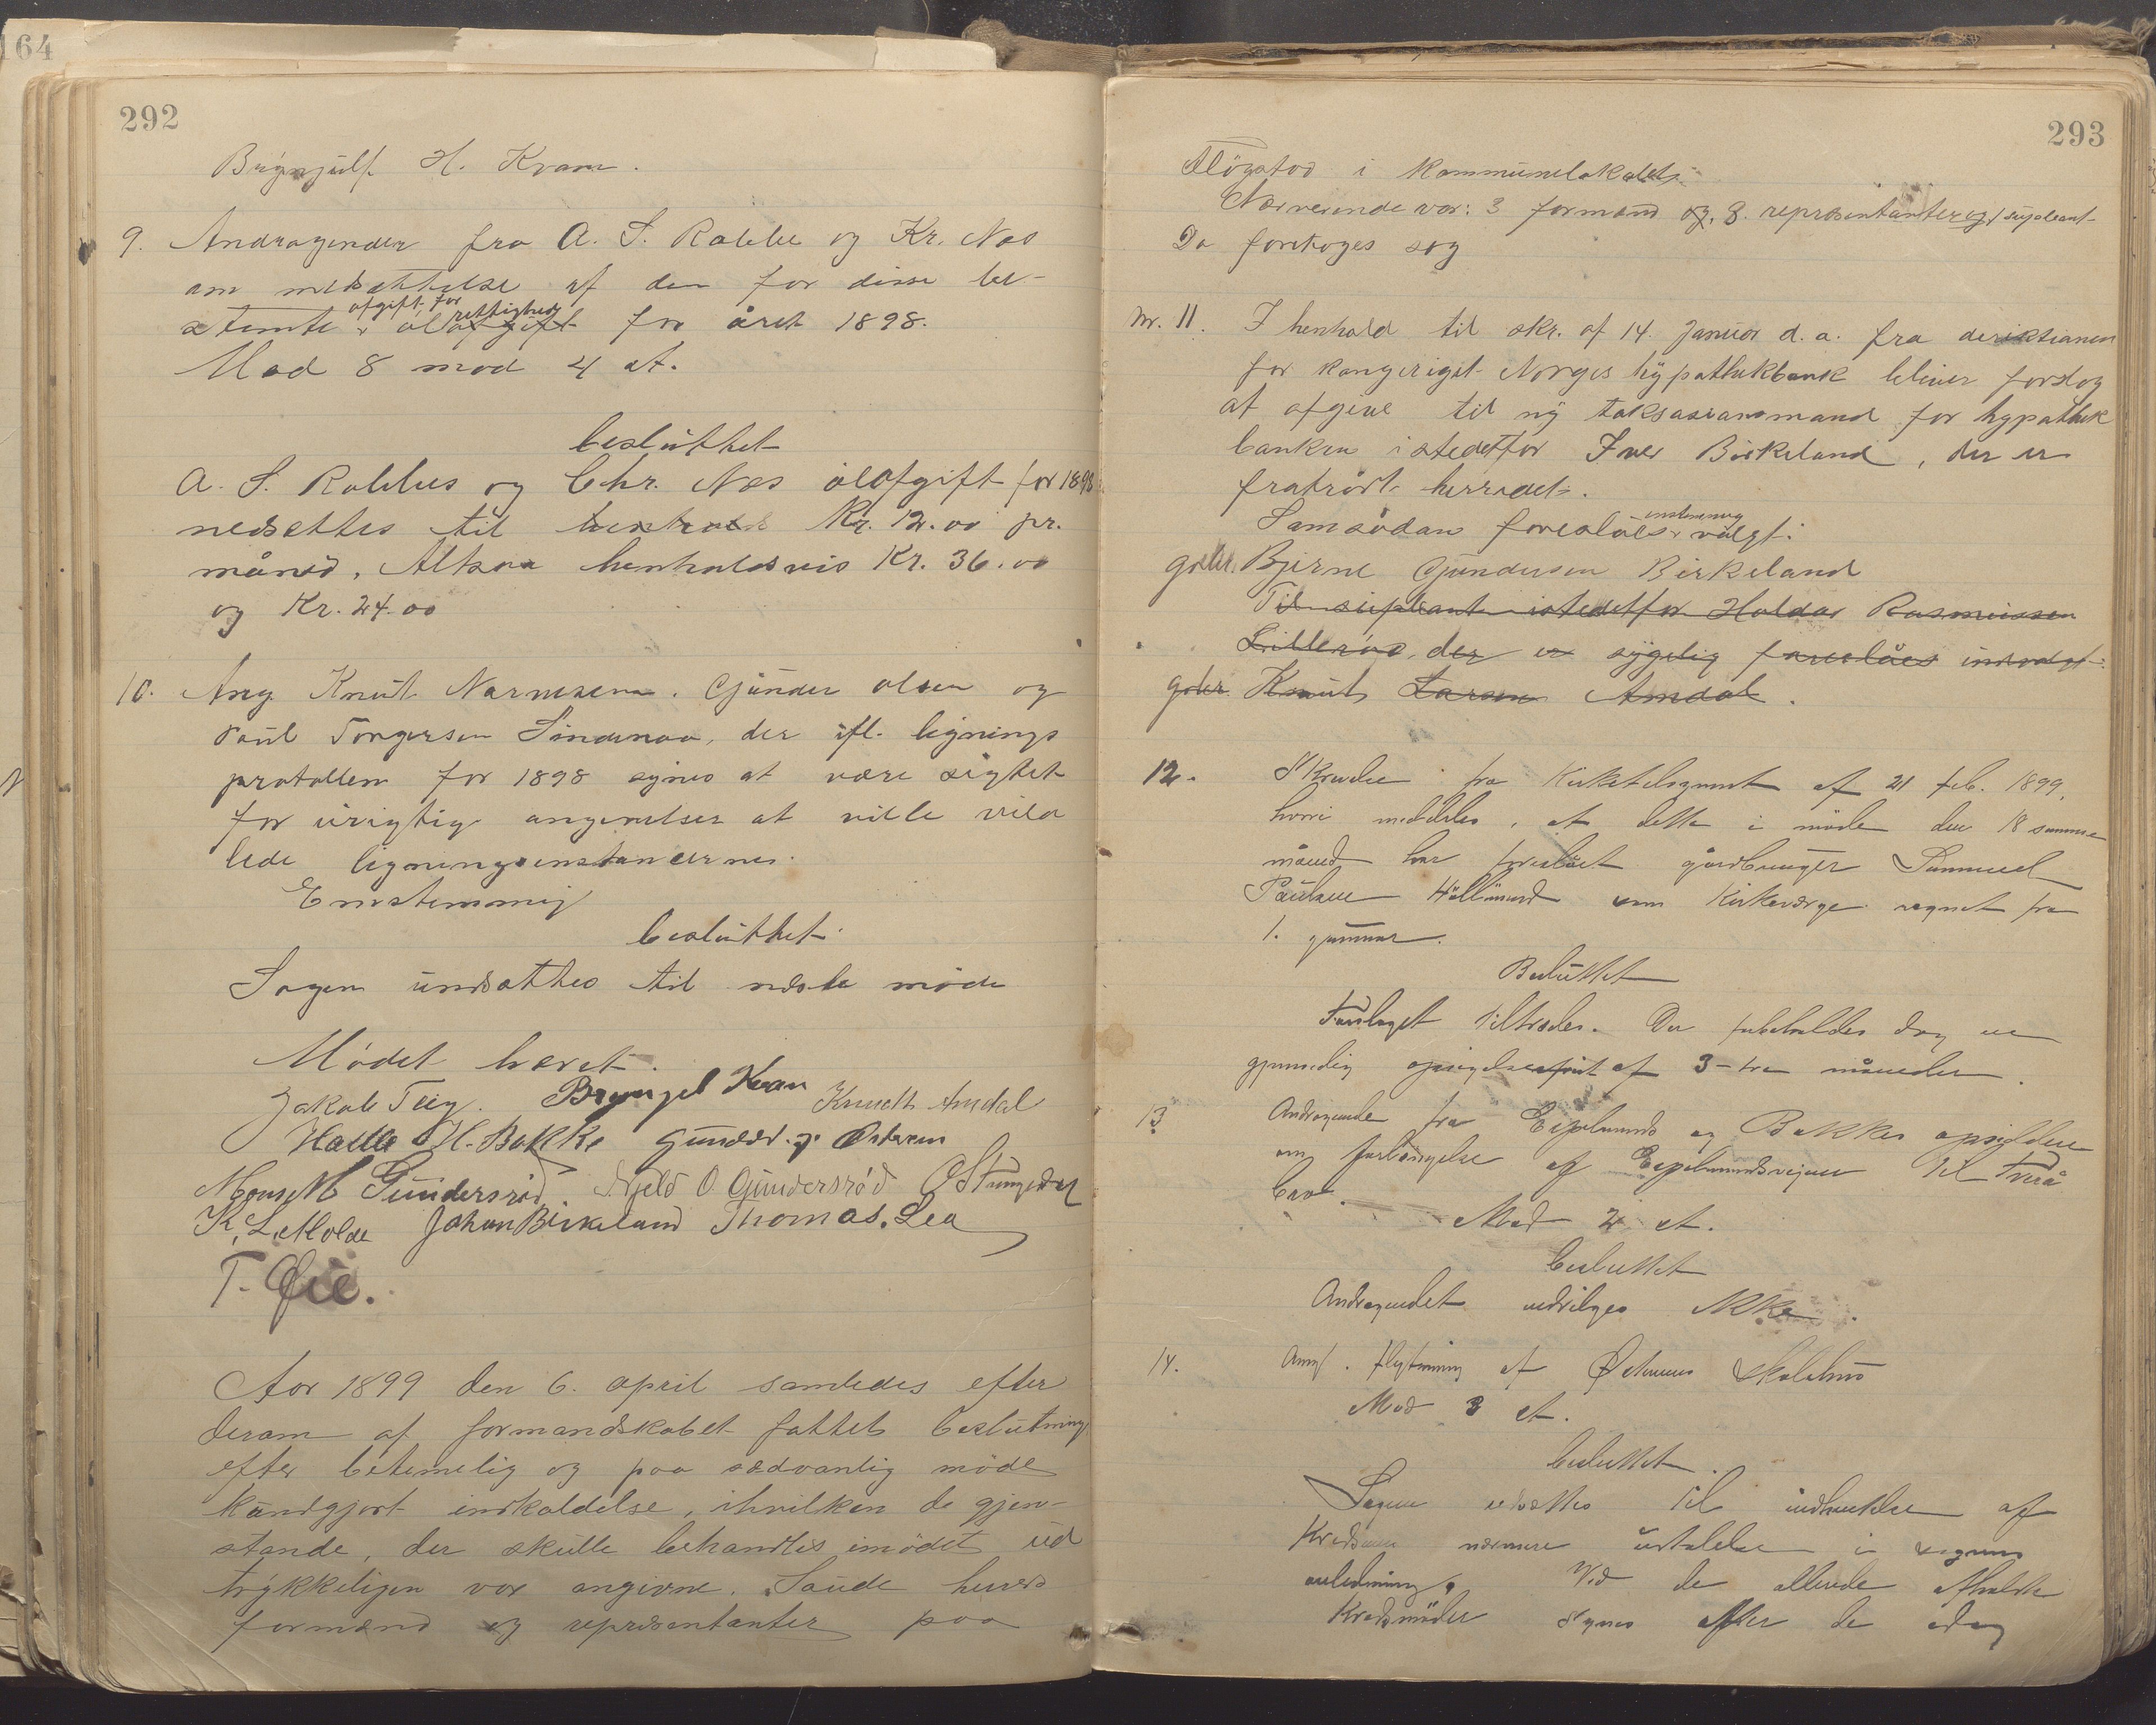 64
292
Brýnjulf H. Kvam.
9. Andragender fra A. S. Rabbe og Kr. Næs
om nedsættelse af den for disse be-
afgift for rettighed
stemte ølafgift for året 1898.
Mod 8 mod 4 st.
besluttet
A. S. Rabbes og Chr. Næs ølafgift for 1898
nedsættes til Kr. 12.00 pr.
måned, Altsaa henholdsvis Kr. 36.00
og Kr. 24.00
10. Ang Knut Gunder olsen og
Torgersen der ifl. lignings
protollen for 1898 synes at være sigtet
for urigtig angivelser at ville vild
lede ligningsinstancerne.
Enstemmig
besluttet
Sagen undsættes til næste møde
Mødet hævet.
Jakob Teig. Bryngel Kvam Knudt Amdal
Halle H. Bakke Gunder J. Østerem
Mons M Gundersröd. Njeld O Gundersröd O Stumpedal
K. L. Molde Johan Birkeland Thomas. Lea
T. Øie.
Aar 1899 den 6. april samledes efter
derom af formandskabet fattet beslutning
efter betimelig og paa sædvanlig måde
kundgjort indkaldelse, ihvilken de gjen-
stande, der skulle behandles imødet ud
trykkeligen var angivne. Saude herreds
formænd og repræsentanter paa
293
Fløgstad i kommunelokalet.
Nærværende var: 3 formænd og 8. repræsentanter og 1 supleant
Da foretoges sag
Nr. 11. I henhold til skr. af 14. januar d. a. fra direktionen
for kongeriget Norges hypothekbank bliver forslag
at afgive til ny taksasionsmand for hypothek
banken istedetfor Iver Birkeland, der er
fraflyttet herredet.
enstemmig
Som sådan foreslåes valgt:
gdbr. Bjerne Gundersen Birkeland
Til supleant istedetfor Haldor Rasmussen
Lillerød, der er sygelig foreslåes indvalgt
gdbr. Knut Larsen Amdal.
12. Skrivelse fra Kirketilsynet af 21 feb. 1899,
hvori meddeles, at dette i møde den 18 samme
måned har foreslået gårdbruger Sammuel
Paulsen som Kirkeværge regnet fra
1. januar.
Besluttet
Forslaget tiltrædes. Der forbeholdes dog en
gjensidig opsigelsesfrist af 3-tre måneder.
13. Andragende fra og Bakkes opsiddere
om forlængelse af til
bro.
Mod 2 st.
besluttet
Andragendet ikke.
14. Angf. flytning af Østrems Skolehus
Mod 3 st.
besluttet.
Sagen udsættes til indhentelse af
Kredsens nærmere udtalelse i sagens
anledning. Ved de allerede afholdte
Kredsmøder synes efter de idag